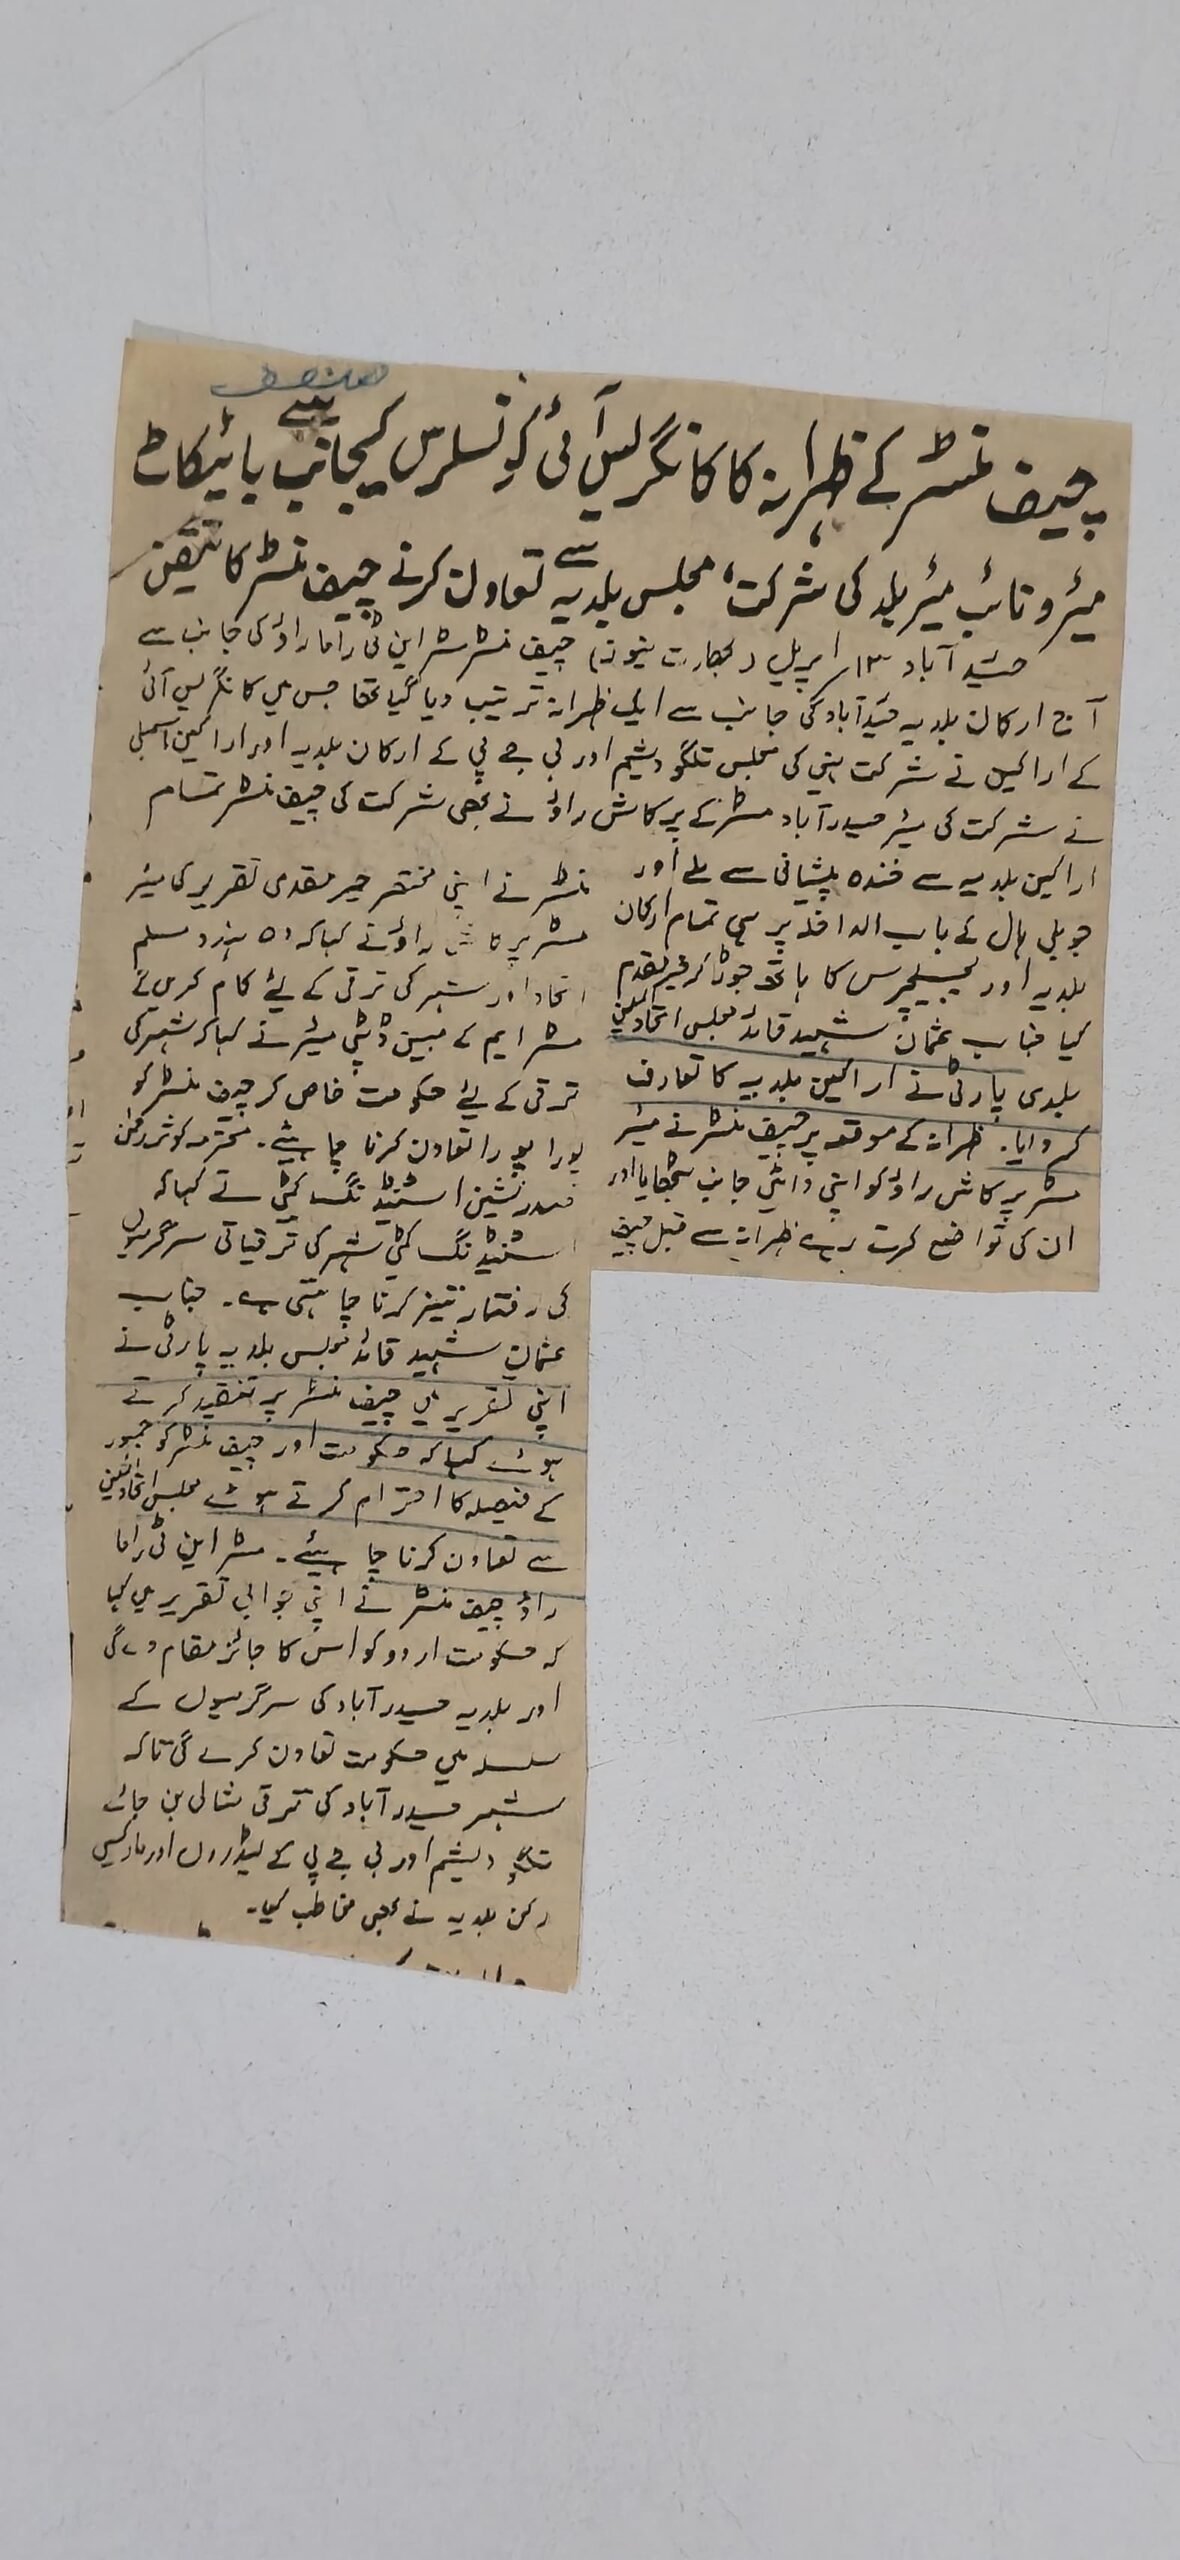 منصف
چیف منسٹر کے ظہرانہ کا کانگریس آئی کونسلرس کیجانب سے بائیکاٹ
میئر و نائب میئر بلدکی شرکت، مجلس بلدیہ سے تعاون کرنے چیف منسٹر کا تیقن
حیدآباد ۱۳/ اپریل (بھارت نیوز) چیف منسٹر مسٹر این ٹی راما راؤ کی جانب سے
آج ارکان بلدیہ حیدآباد کی جانب سے ایک ظہرانہ ترتیب دیا گیا تھا جس میں کانگریس آئی
کے اراکین نے شرکت نہیں کی مجلس تلگو دیشم اور بی جے پی کے ارکان بلدیہ اور اراکین اسمبلی
نے شرکت کی میئر حیدرآباد مسٹر کے پرکاش راؤ نے بھی شرکت کی چیف منسٹر تمام
اراکین بلدیہ سے خندہ پیشانی سے ملے اور
جوبلی ہال کے باب الداخلہ پر ہی تمام ارکان
بلدیہ اور لیجسلیچرس کا ہاتھ جوڑ کر خیرمقدم
کیا جناب عثمان شہید قائد مجلس اتحادالمسلمین
بلدی پارٹی نے اراکین بلدیہ کا تعارف
کروایا۔ ظہرانہ کے موقعہ پر چیف منسٹر نے میئر
مسٹر پرکاش راؤ کو اپنی داہنی جانب بٹھایا اور
ان کی تواضع کرتے رہے ظہرانہ سے قبل چیف
منسٹر نے اپنی مختصر خیر مقدمی تقریر کی میئر
مسٹر پرکاش راؤ نے کہا کہ وہ ہندو مسلم
اتحاد اور شہر کی ترقی کے لئے کام کریں گے
مسٹر ایم کے مبین ڈپٹی میئر نے کہا کہ شہر کی
ترقی کے لئے حکومت خاص کر چیف منسٹر کو
پورا پورا تعاون کرنا چاہیئے۔ محترمہ کوثر رکن
صدرنشین اسٹینڈنگ کمیٹی نے کہا کہ
اسٹنڈنگ کمیٹی شہر کی ترقیاتی سرگرمیوں
کی رفتار تیز کرنا چاہتی ہے۔ جناب
عثمان شہید قائد مجلس بلدیہ پارٹی نے
اپنی تقریر میں چیف منسٹر پر تنقید کرتے
ہوئے کہا کہ حکومت اور چیف منسٹر کو جمہور
کے فیصلہ کا احترام کرتے ہوئے مجلس اتحادالمسلمین
سے تعاون کرنا چاہیئے۔ مسٹر این ٹی راما
راؤ چیف منسٹر نے اپنی جوابی تقریر میں کہا
کہ حکومت اردو کو اس کا جائز مقام دے گی
اور بلدیہ حیدرآباد کی سرگرمیوں کے
سلسلہ میں حکومت تعاون کرے گی تاکہ
شہر حیدرآباد کی ترقی مثالی بن جائے
تلگو دیشم اور بی جے پی کے لیڈروں اور مارکسی
رکن بلدیہ نے بھی مخاطب کیا۔